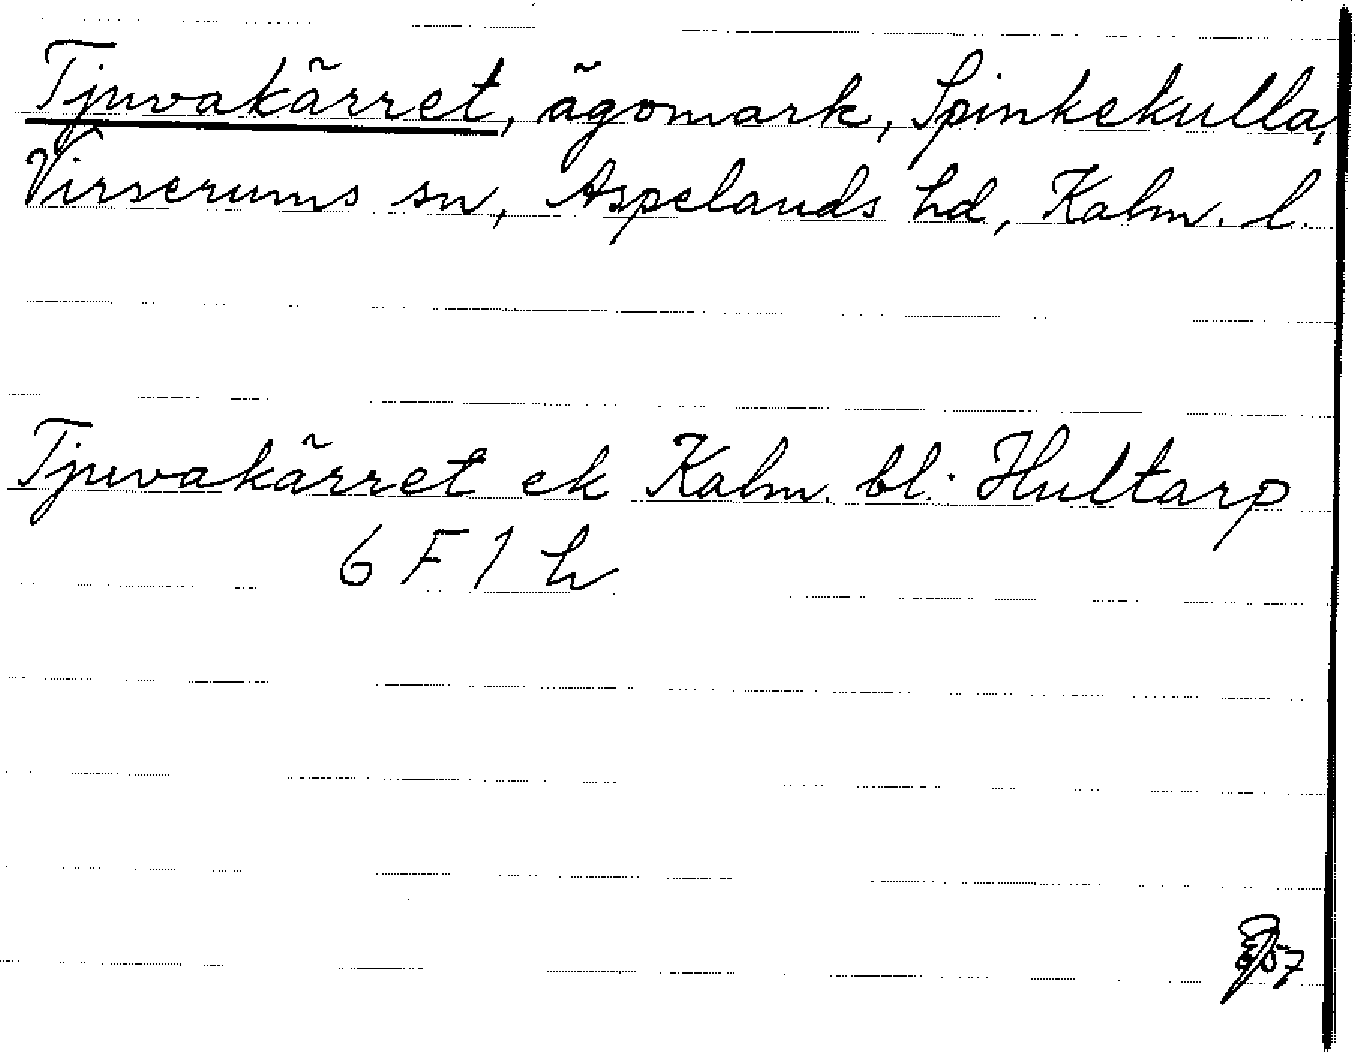 Tjuvakärret, ägomark, Spinkekulla,
Virserums sn, Aspelands hd, Kalm. l.
Tjuvakärret ek Kalm. bl. Hultarp
6 F 1 h